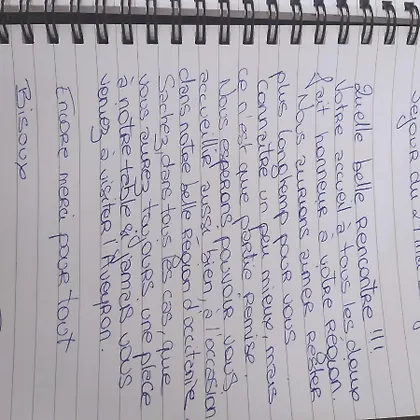 Séjour du
Quelle belle Rencontre !!!
Votre accueil à tous les deux
fait honneur à votre Région.
Nous aurions aimer rester
plus longtemp pour vous
connaitre un peu mieux, mais
ce n'est que partie remise.
Nous esperons pouvoir vous
accueillir aussi bien, à l'occasion
dans notre belle Région d'occitanie.
Sachez, dans tous les cas, que
vous aurez toujours une place
à notre table si jamais vous
venez à visiter l'Aveyron.
Encore merci pour tout
Bisoux